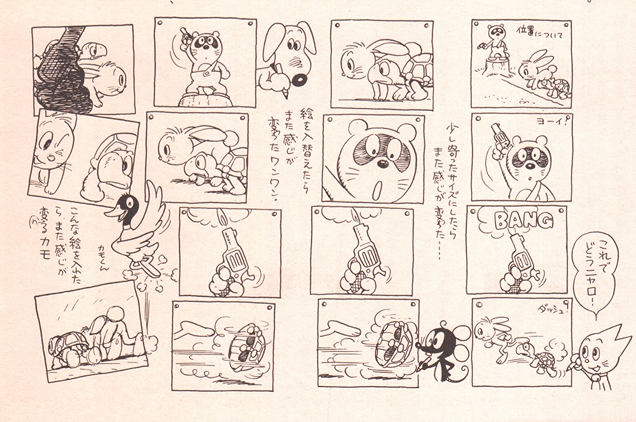 位置について
ヨーイ!
BANG
ダッシュ!
これで
どうニャロ!
少し寄ったサイズにしたら
また感じが変わった……
絵を入替えたら
また感じが
変ったワンワン.
カモくん
こんな絵を入れた
ら、また感じが
変るカモ